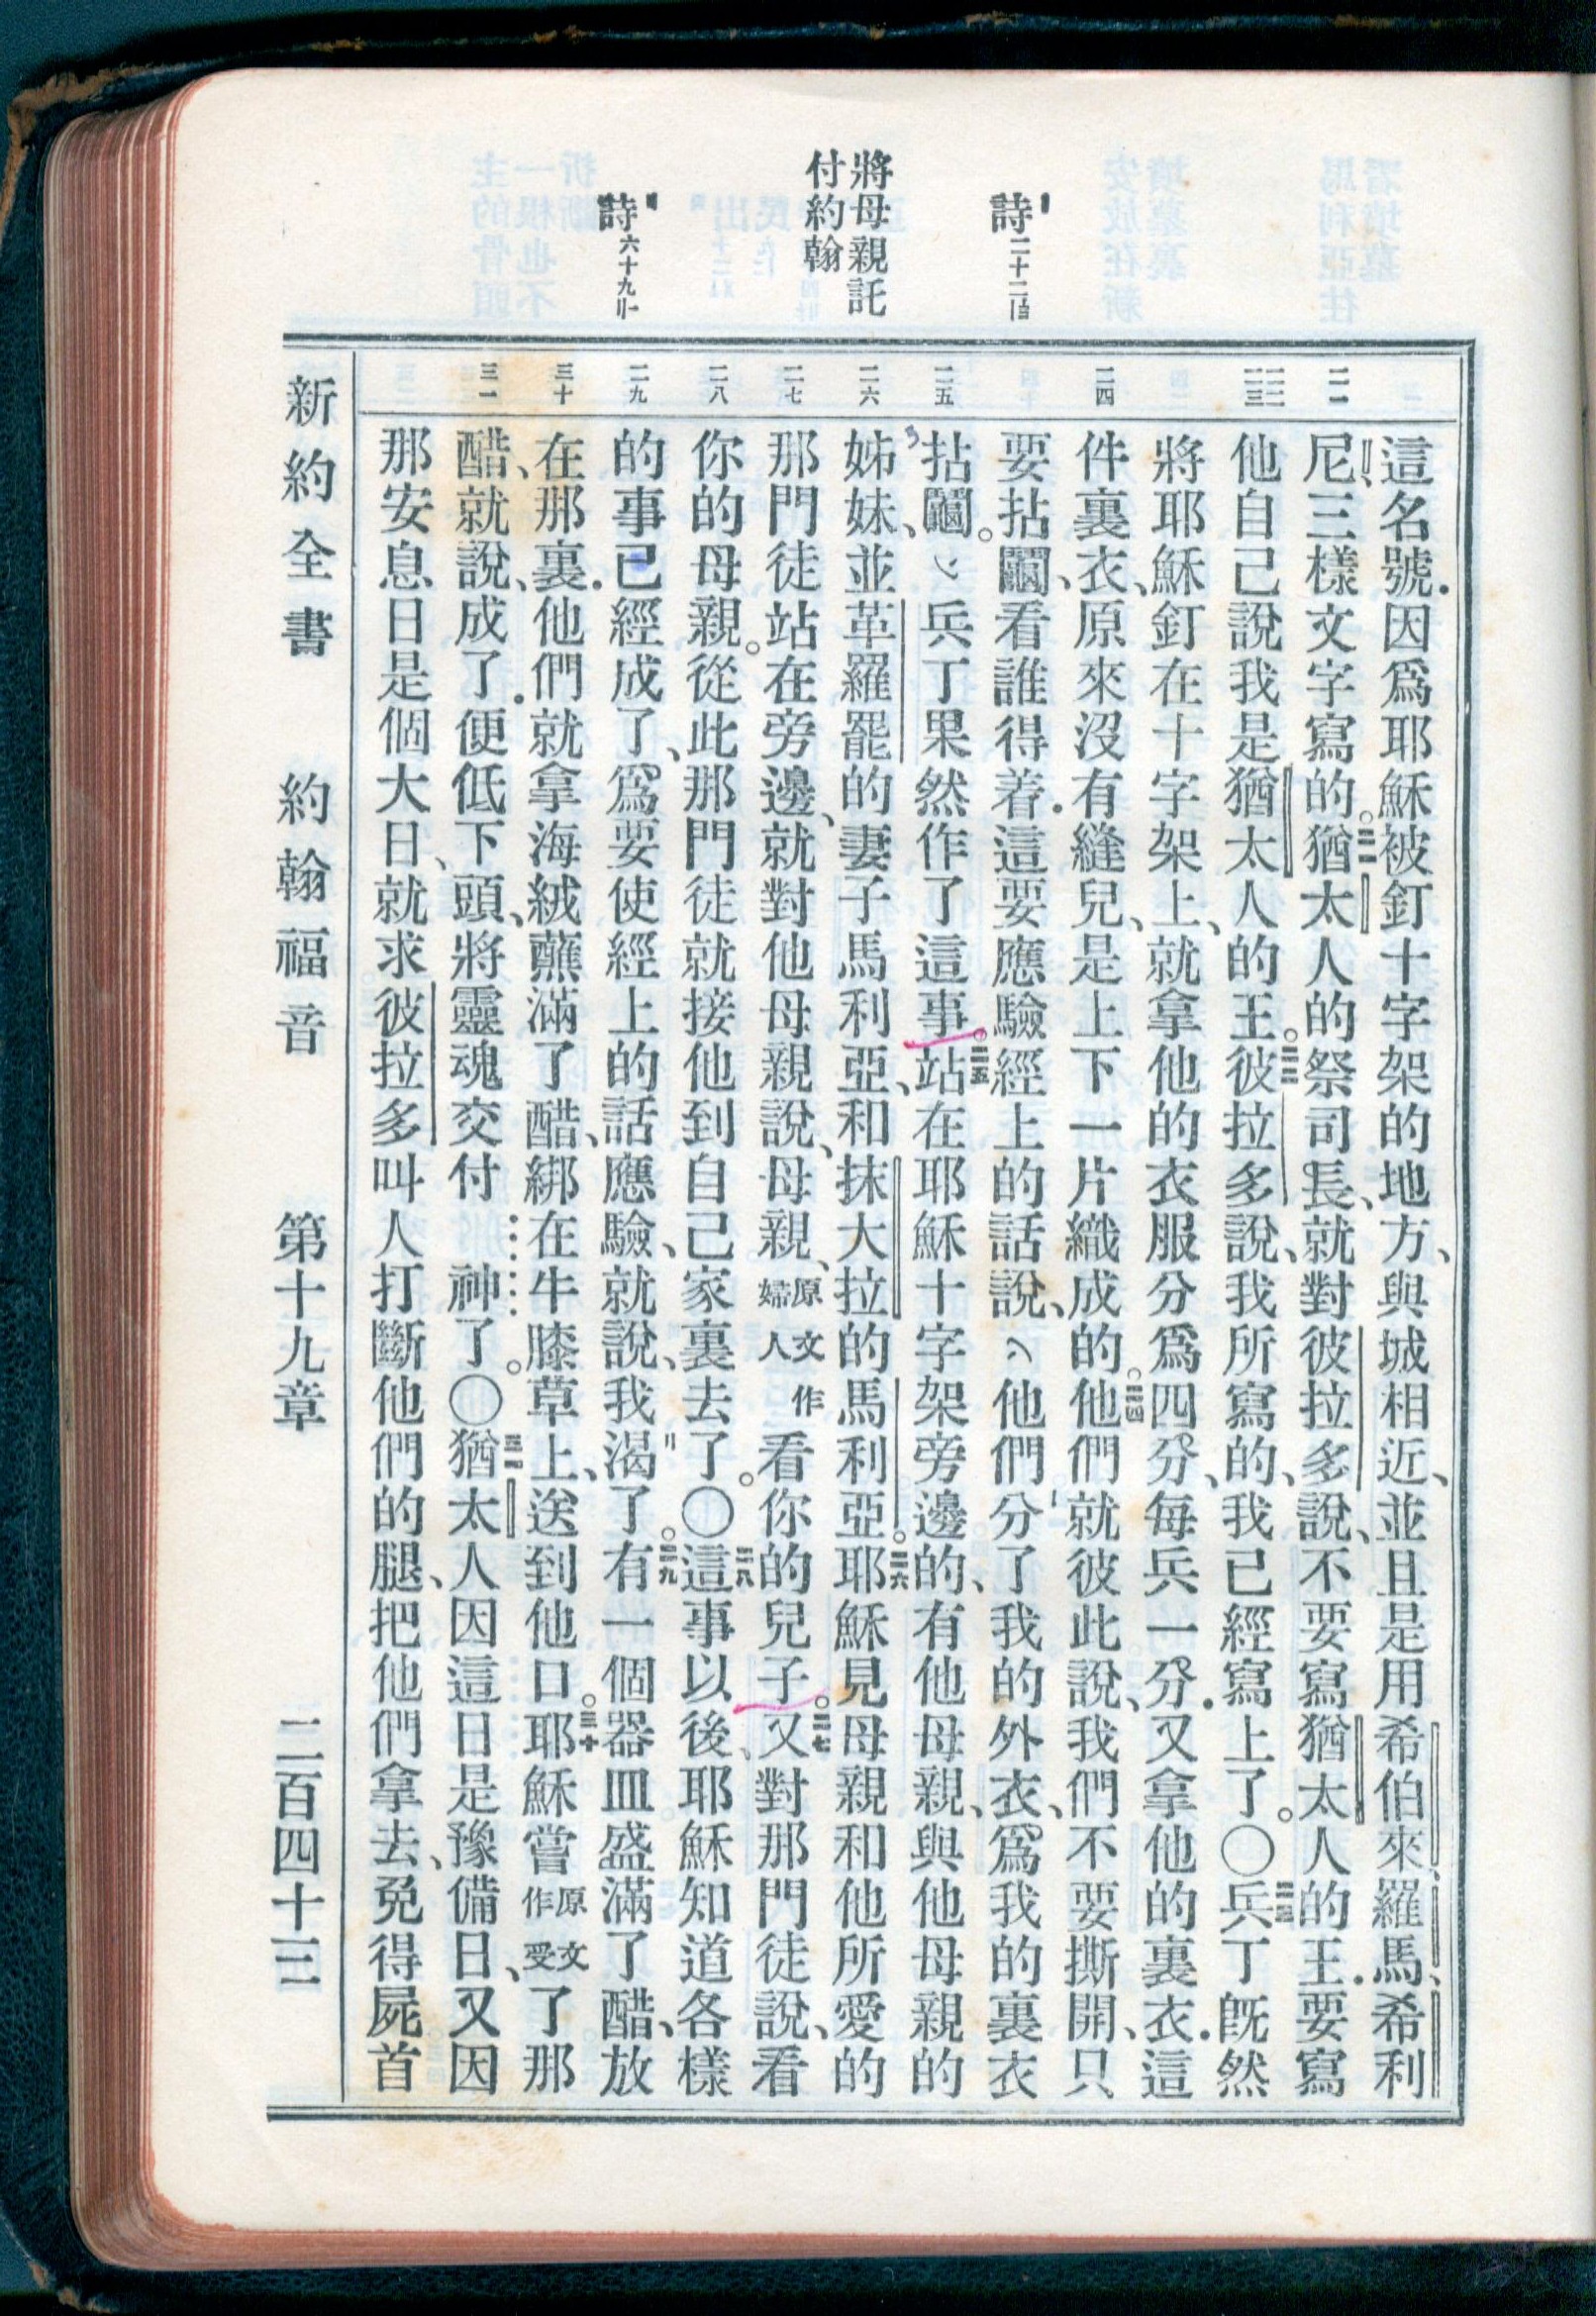 詩二十二
將母親託
付約翰
詩六十九
二一
二二
二三
二四
二五
二六
二七
二八
二九
三十
三一
這名號．因爲耶穌被釘十字架的地方、與城相近、並且是用希伯來、羅馬、希利
尼、三樣文字寫的。二一猶太人的祭司長、就對彼拉多說、不要寫猶太人的王．要寫
他自己說我是猶太人的王。二二彼拉多說、我所寫的、我已經寫上了。〇二三兵丁旣然
將耶穌釘在十字架上、就拿他的衣服分爲四分、每兵一分．又拿他的裏衣．這
件裏衣、原來沒有縫兒、是上下一片織成的。二四他們就彼此說、我們不要撕開、只
要拈鬮、看誰得着．這要應驗經上的話說、他們分了我的外衣、爲我的裏衣
拈鬮。兵丁果然作了這事。二五站在耶穌十字架旁邊的、有他母親、與他母親的
姊妹、並革羅罷的妻子馬利亞、和抹大拉的馬利亞。二六耶穌見母親和他所愛的
那門徒站在旁邊、就對他母親說、母親、原文作婦人看你的兒子。二七又對那門徒說、看
你的母親。從此那門徒就接他到自己家裏去了。〇二八這事以後、耶穌知道各樣
的事已經成了、爲要使經上的話應驗、就說、我渴了。二九有一個器皿盛滿了醋、放
在那裏．他們就拿海絨蘸滿了醋、綁在牛膝草上、送到他口。三十耶穌嘗原文作受了那
醋、就說、成了．便低下頭、將靈魂交付　神了。〇三一猶太人因這日是豫備日、又因
那安息日是個大日、就求彼拉多叫人打斷他們的腿、把他們拿去、免得屍首
新約全書　約翰福音　第十九章　二百四十三